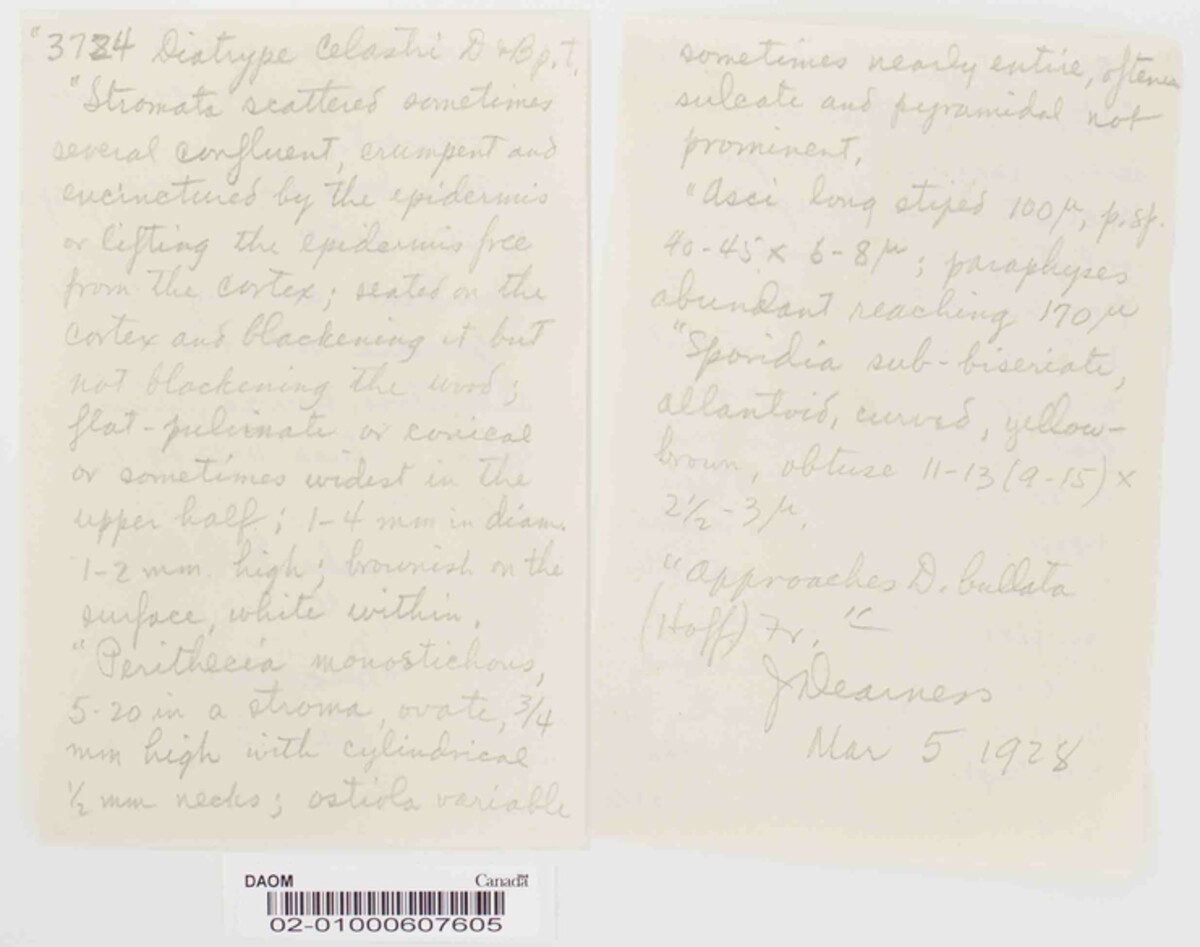 "3724 Diatype Celastri D & B p.t.
"Stromata scattered sometimes
several confluent, erumpent and
encinctured by the epidermis
or lifting the epidermis free
from the cortex; seated on the
cortex and blackening it but
not blackening the wood;
flat-pulvinate or conical
or sometimes widest in the
upper half; 1-4 mm in diam.
1-2 mm high; brownish on the
surface, white within.
"Perithecia monostichous,
5-20 in a stroma, ovate, 3/4
mm high with cylindrical
½ mm necks; ostiola variable
sometimes nearly entire, oftener
sulcate and pyramidal not
prominent.
"Asci long stiped 100µ, p.sp.
40-45 x 6-8µ; paraphyses
abundant reaching 170µ
"Sporidia sub-biseriate,
allantoid, curved, yellow-
brown, obtuse 11-13 (9-15) x
2½-3µ.
"Approaches D. bullata
(Hoff) Fr."
J Dearness
Mar 5 1928
DAOM Canada
02-01000607605